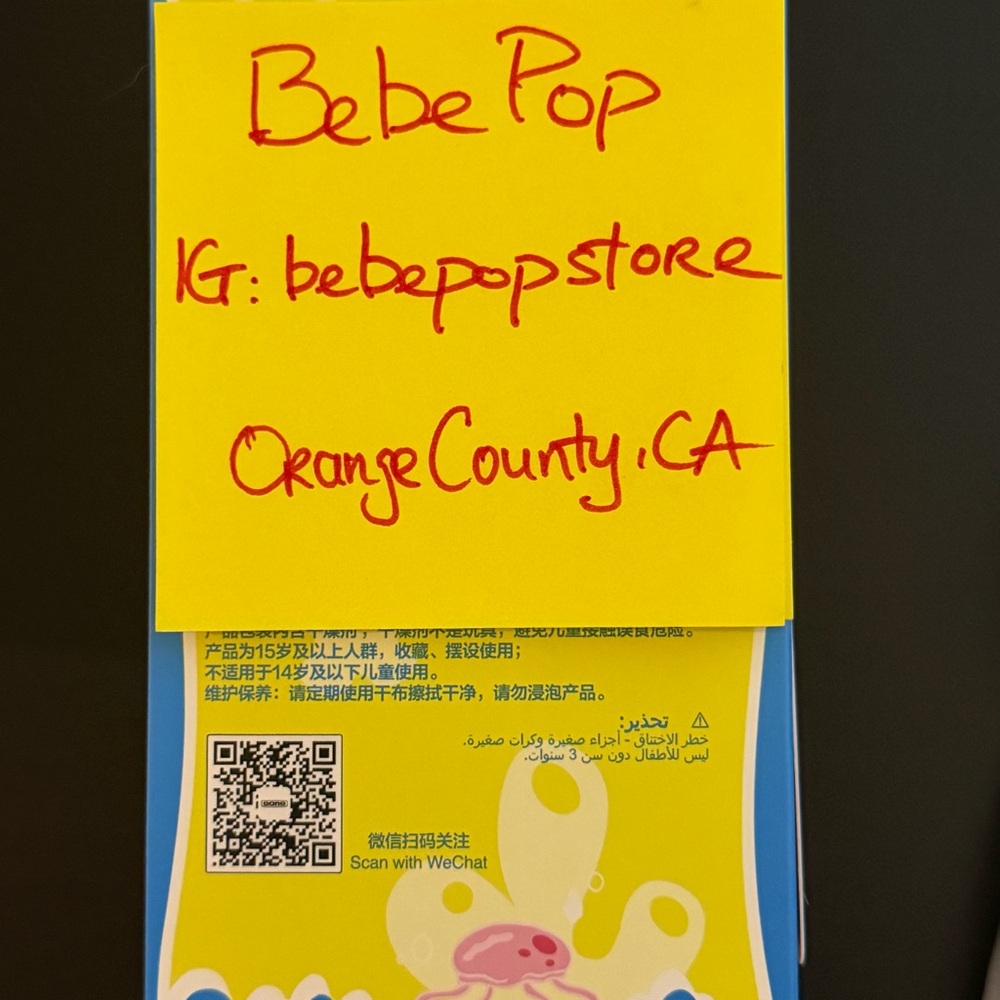 Bebe Pop
IG: bebepopstore
Orange County, CA
产品包装内含干燥剂，干燥剂不是玩具，避免儿童接触误食危险。
产品为15岁及以上人群，收藏、摆设使用；
不适用于14岁及以下儿童使用。
维护保养：请定期使用干布擦拭干净，请勿浸泡产品。
⚠ تحذير:
خطر الاختناق - أجزاء صغيرة وكرات صغيرة.
ليس للأطفال دون سن 3 سنوات.
微信扫码关注
Scan with WeChat